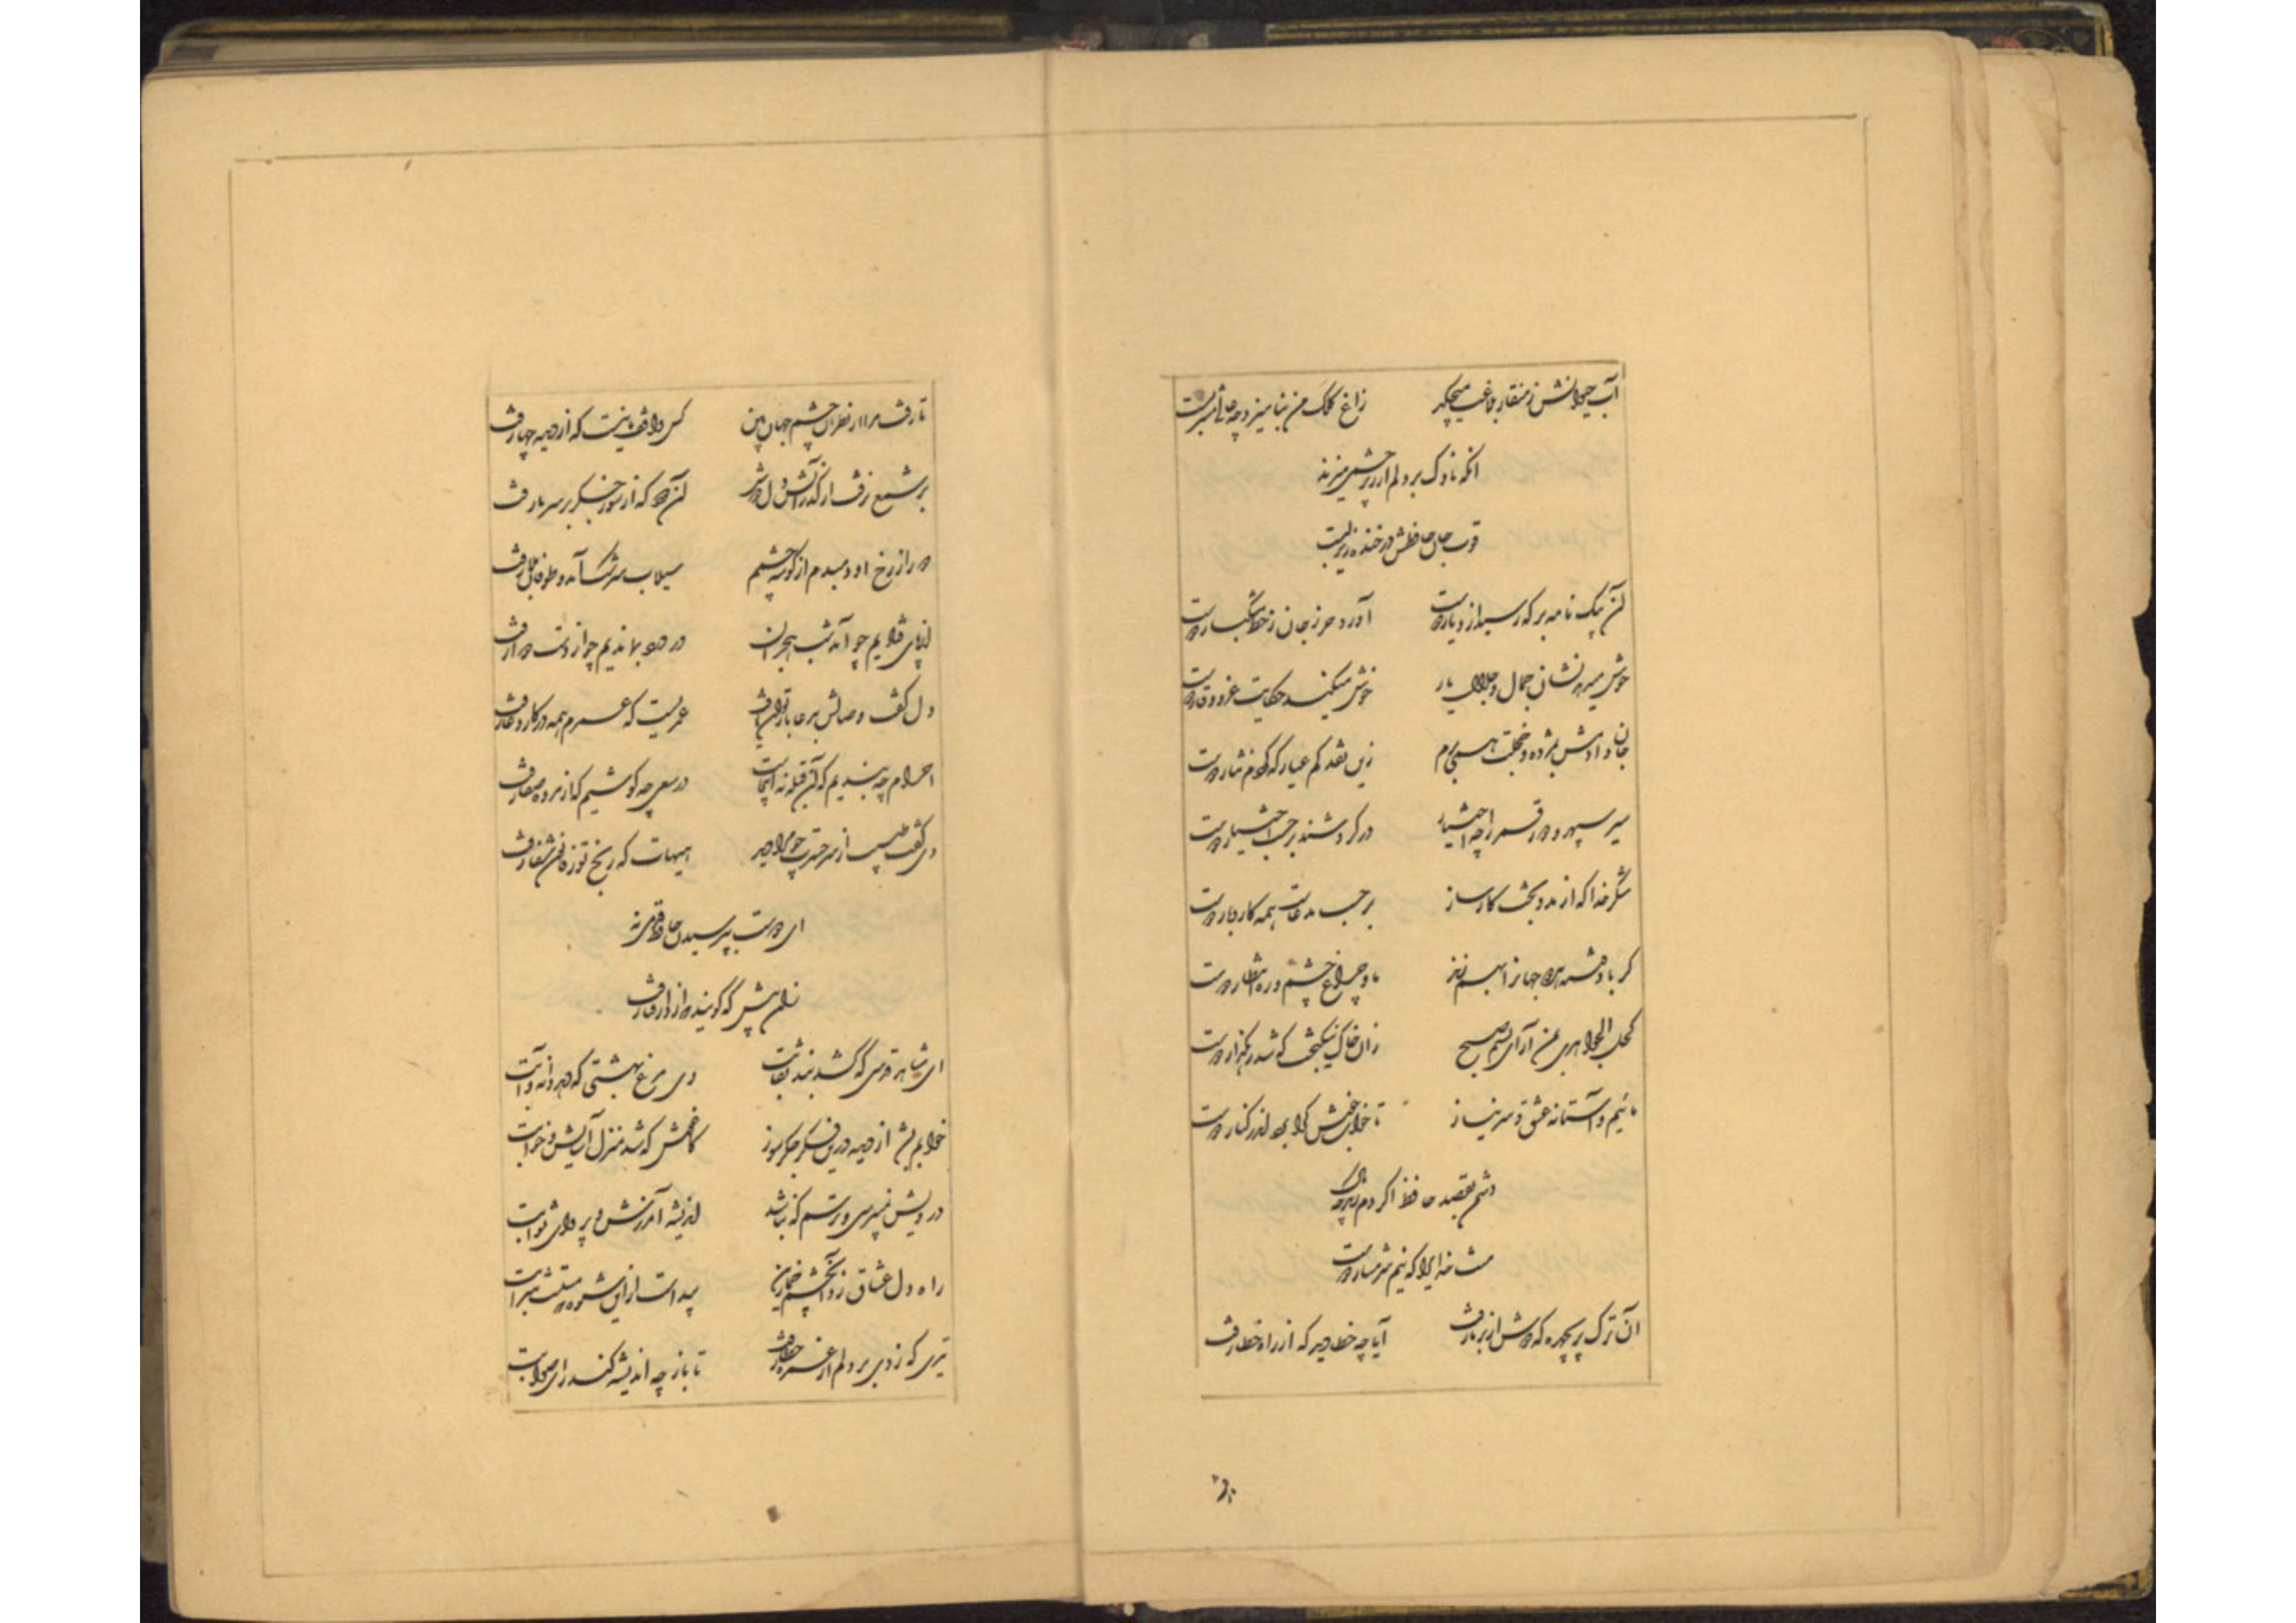 آب حیوانش ز منقار بلاغت میچکد زاغ کلک من بنامیزد چه عالی مشربست
آنکه ناوک بر دلم از زیر چشمی میزند
قوت جان حافظش در خنده زیر لبست
آن پیک نامه بر که رسید از دیار دوست آورد حرز جان ز خط مشکبار دوست
خوش میدهد نشان جمال و جلال یار خوش میکند حکایت عز و وقار دوست
جان دادمش بمژده و خجلت همی برم زین نقد کم عیار که کردم نثار دوست
سیر سپهر و دور قمر را چه اختیار در گردشند بر حسب اختیار دوست
شکر خدا که از مدد بخت کارساز بر حسب مدعاست همه کار و بار دوست
گر باد فتنه هر دو جهانرا بهم زند ما و چراغ چشم و ره انتظار دوست
کحل الجواهری بمن آر ای نسیم صبح زان خاک نیکبخت که شد رهگذار دوست
مائیم و آستانه عشق و سر نیاز تا خواب خوش کرا بود اندر کنار دوست
دشمن بقصد حافظ اگر دم زند چه باک
منت خدایرا که نیم شرمسار دوست
آن ترک پریچهره که دوش از بر ما رفت آیا چه خطا دید که از راه خطا رفت
تا رفت
تا رفت مرا از نظر آن چشم جهان بین کس واقف ما نیست که از دیده چها رفت
بر شمع نرفت از گذر آتش دل دوش آن دود که از سوز جگر بر سر ما رفت
دور از رخ او دمبدم از گوشه چشمم سیلاب سرشک آمد و طوفان بلا رفت
از پای فتادیم چو آمد شب هجران در درد بماندیم چو از دست دوا رفت
دل گفت وصالش بدعا باز توان یافت عمریست که عمرم همه در کار دعا رفت
احرام چه بندیم که آن قبله نه اینجاست در سعی چه کوشیم که از مروه صفا رفت
دی گفت طبیب از سر حسرت چو مرا دید هیهات که رنج تو ز قانون شفا رفت
ای دوست بپرسیدن حافظ قدمی نه
زان پیش که گویند که از دار فنا رفت
ای شاهد قدسی که کشد بند نقابت وی مرغ بهشتی که دهد دانه و آبت
خوابم بشد از دیده درین فکر جگرسوز کاغوش که شد منزل آسایش و خوابت
درویش نمیپرسی و ترسم که نباشد اندیشه آمرزش و پروای ثوابت
راه دل عشاق زد آن چشم خمارین پیداست ازین شیوه که مستست شرابت
تیری که زدی بر دلم از غمزه خطا رفت تا باز چه اندیشه کند رای صوابت